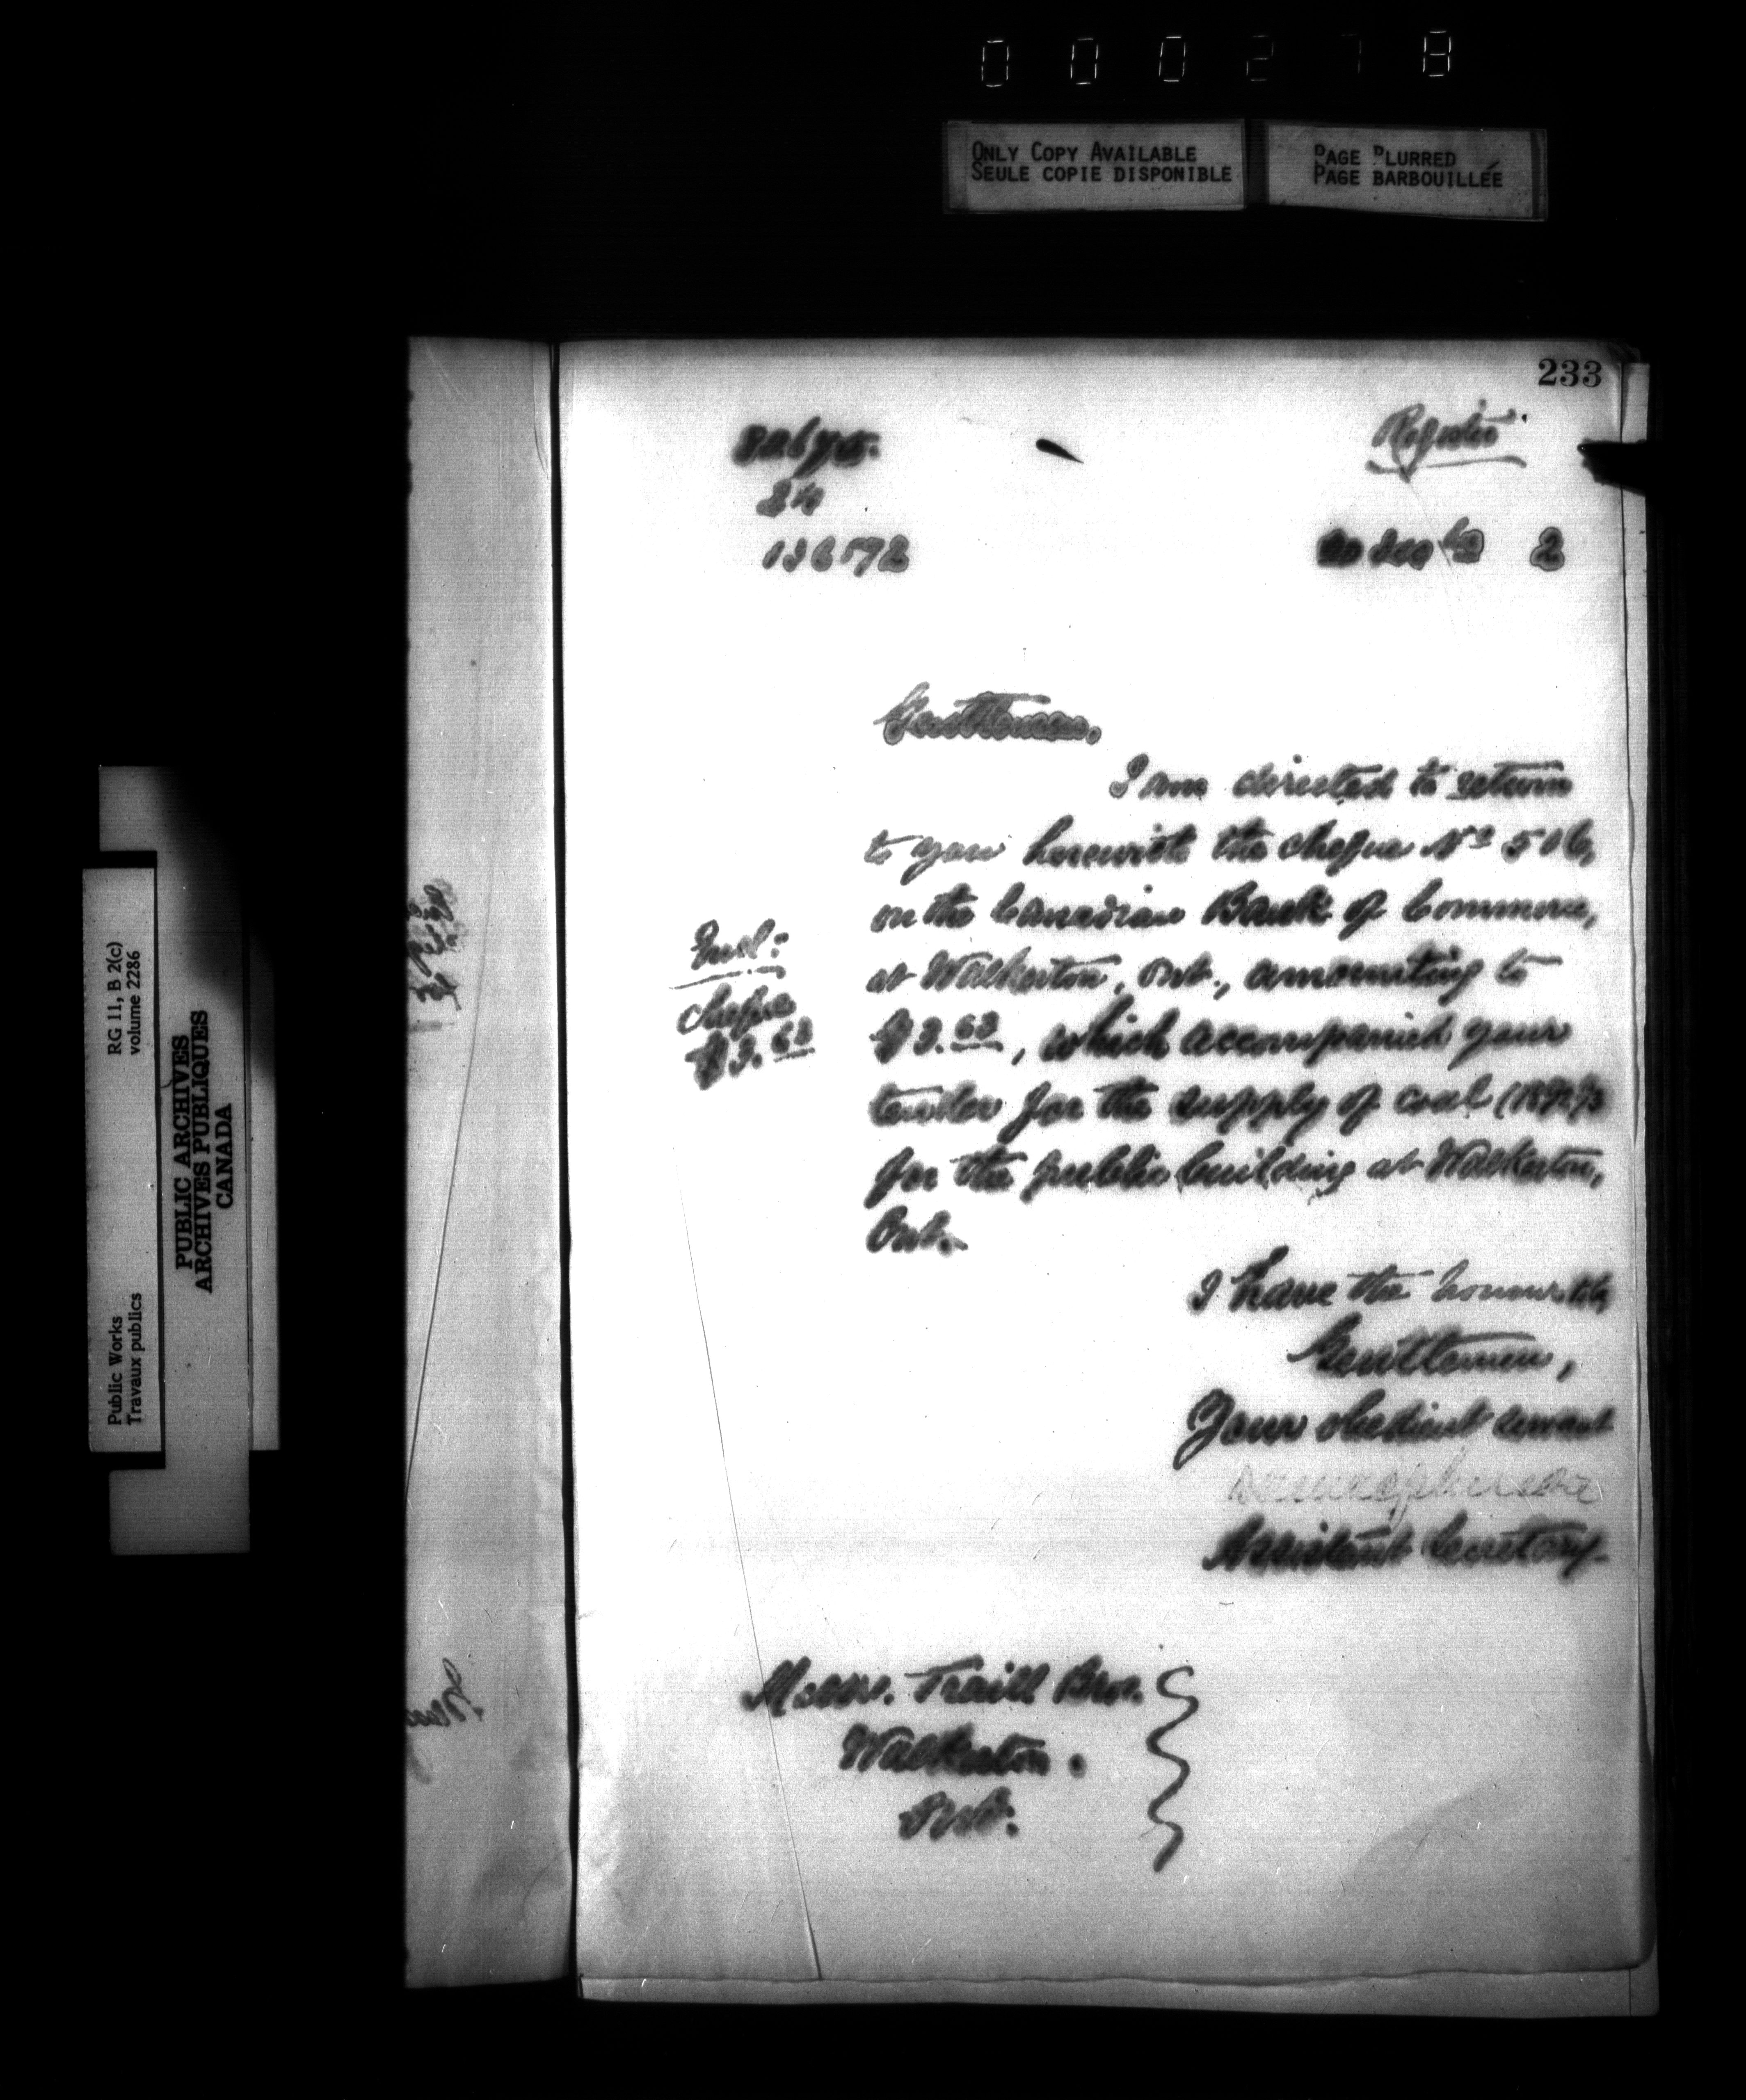 000278
ONLY COPY AVAILABLE
SEULE COPIE DISPONIBLE
PAGE BLURRED
PAGE BARBOUILLÉE
233
Register
24
136592
2
Gentlemen,
I am directed to return
to you herewith the cheque No 506,
on the Canadian Bank of Commerce,
at Walkerton, Ont., amounting to
$3.63, which accompanied your
tender for the supply of coal (1892/3
for the public building at Walkerton,
Ont.
Encl:
cheque
$3.63
I have the honour to be,
Gentlemen,
Your obedient servant
Assistant Secretary.
Messrs. Traill Bros.
Walkerton.
Ont.
RG 11, B 2(c)
volume 2286
PUBLIC ARCHIVES
ARCHIVES PUBLIQUES
CANADA
Public Works
Travaux publics